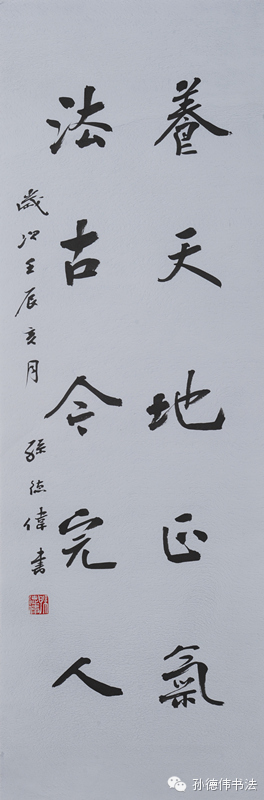 養天地正氣
法古今完人
歲次壬辰亥月 孫德偉書
孙德伟书法